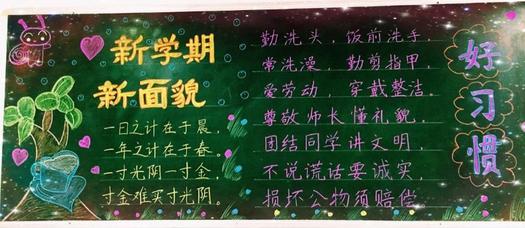 新学期
新面貌
一日之计在于晨，
一年之计在于春。
一寸光阴一寸金，
寸金难买寸光阴。
勤洗头，饭前洗手，
常洗澡，勤剪指甲，
爱劳动，穿戴整洁。
尊敬师长懂礼貌，
团结同学讲文明，
不说谎话要诚实，
损坏公物须赔偿
好习惯